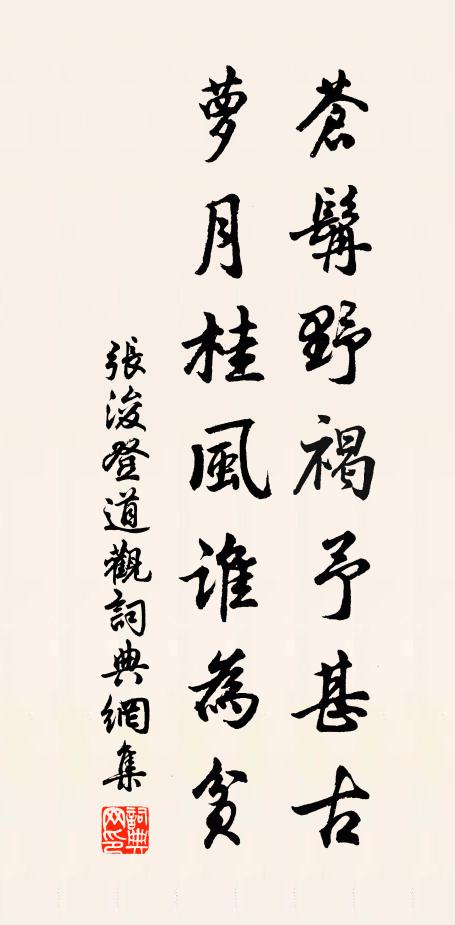 蒼髯野褐予甚古
夢月桂風誰為貧
張浚登道觀詞典網集
詞典網印